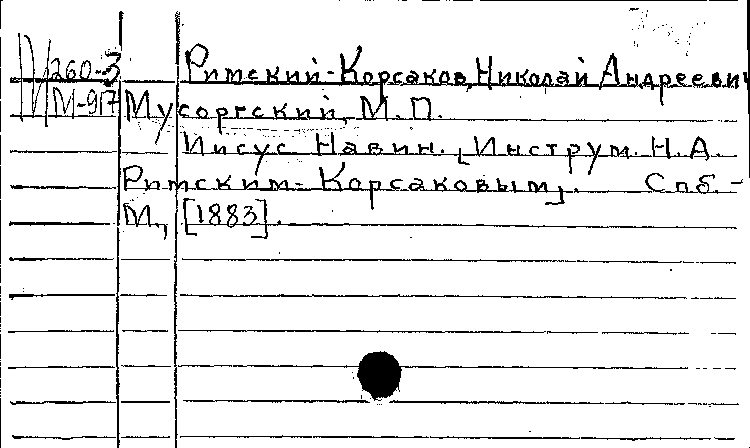 И 260-3 Римский-Корсаков, Николай Андреевич
М-917 Мусоргский, М.П.
Иисус Навин. [Инструм. Н.А.
Римским-Корсаковым]. Спб. -
М., [1883].